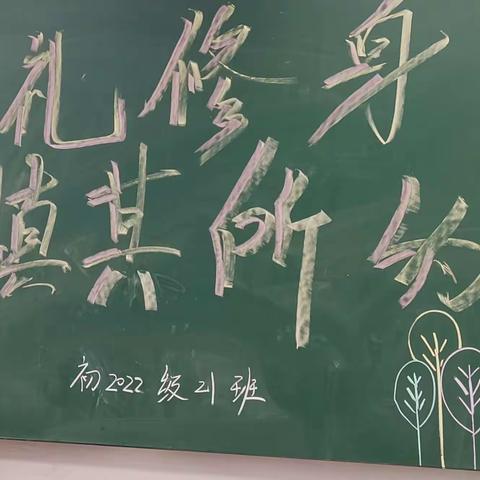 礼修身
慎其所
初2022级21班